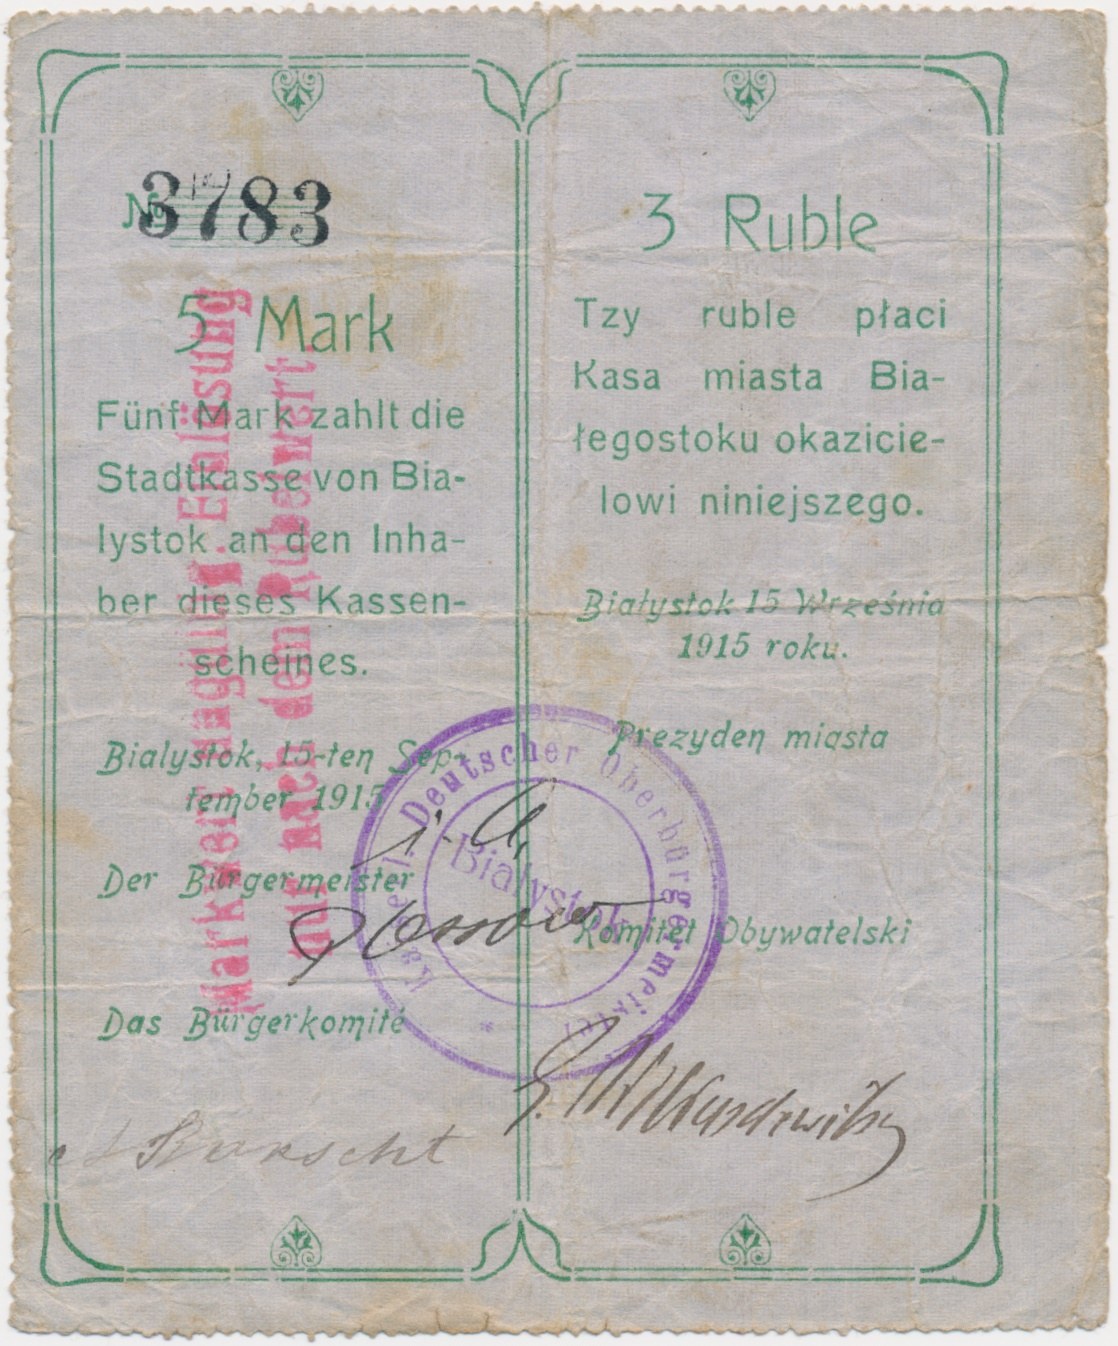 № 3783
5 Mark
Fünf Mark zahlt die
Stadtkasse von Bia-
lystok an den Inha-
ber dieses Kassen-
scheines.
Bialystok, 15-ten Sep-
tember 1915
Der Bürgermeister
Das Bürgerkomité
3 Ruble
Tzy ruble płaci
Kasa miasta Bia-
łegostoku okazicie-
lowi niniejszego.
Białystok 15 Września
1915 roku.
Prezyden miasta
Komitet Obywatelski
Markwert ungültig. Einlösung
nur nach dem Rubelwert.
Kaiserl. Deutscher Oberbürgermeister
*
Bialystok
i. A.